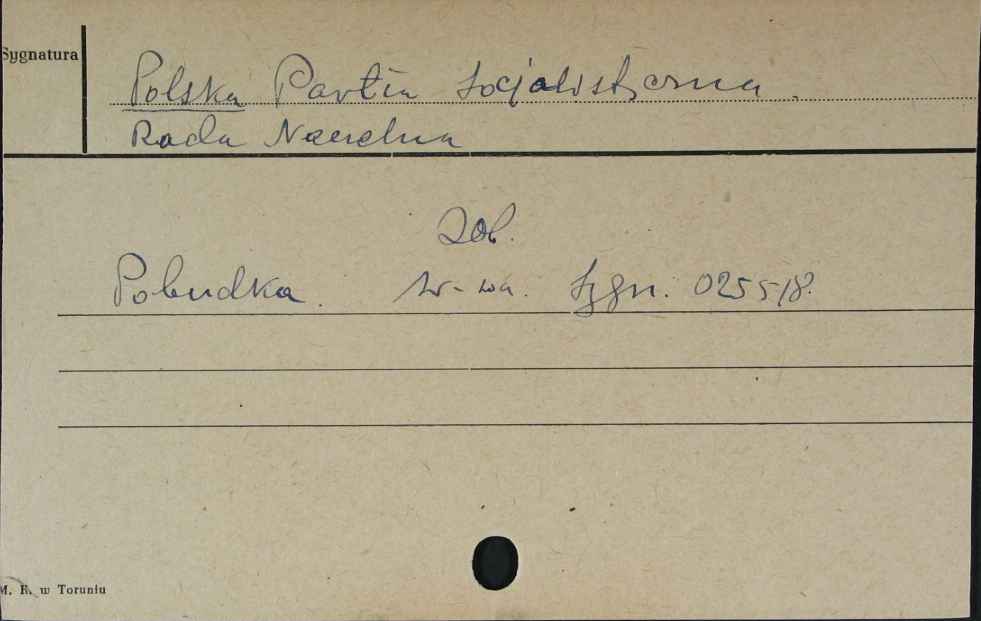 Sygnatura
Polska Partia Socjalistyczna.
Rada Naczelna
Zob.
Pobudka. W-wa. Sygn. 0255/8.
M. R. w Toruniu